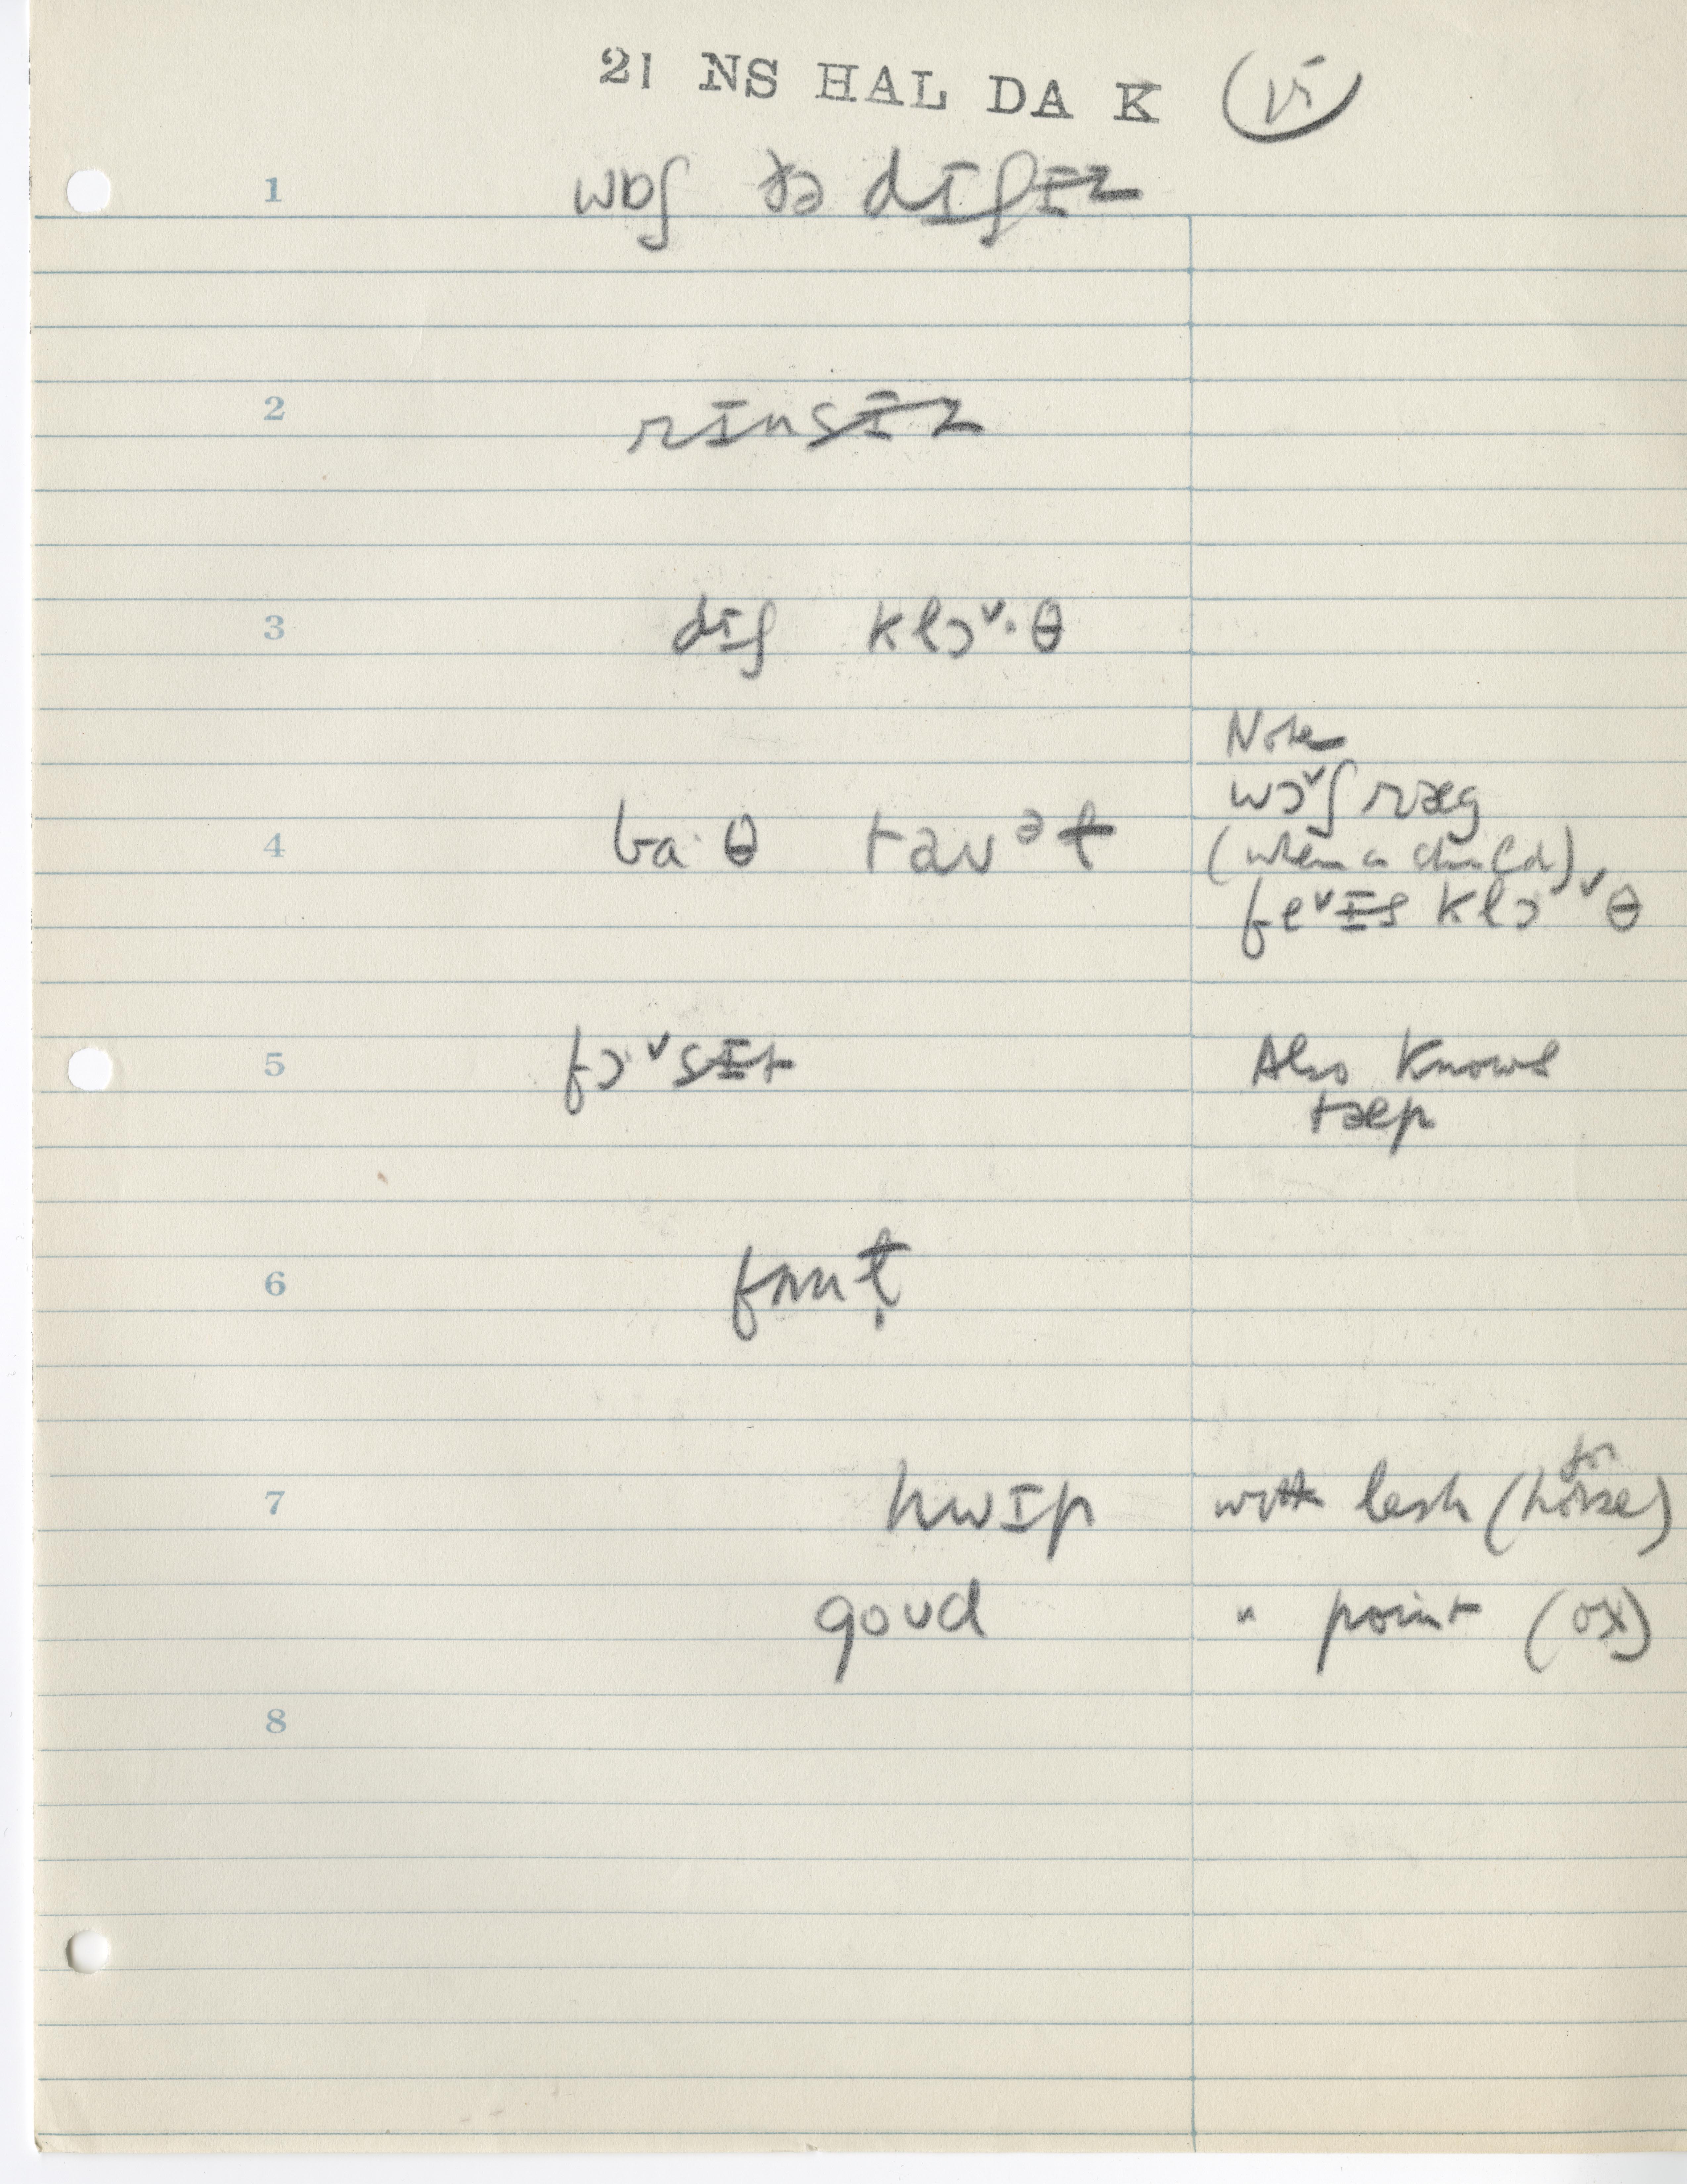 21 NS HAL DA K (vi)
1 wɒʃ ðə dɪʃɪz
2 rɪnsɪz
3 dɪʃ klɔ˅·θ
Note
wɔ˅ʃ ræg
4 ba·θ taʊᵊɫ
(when a child)
fe˅ɪs klɔ˅θ
5 fɔ˅sɪt
Also knows
tæp
6
for
7 hwɪp with lash (horse)
goʊd " point (ox)
8